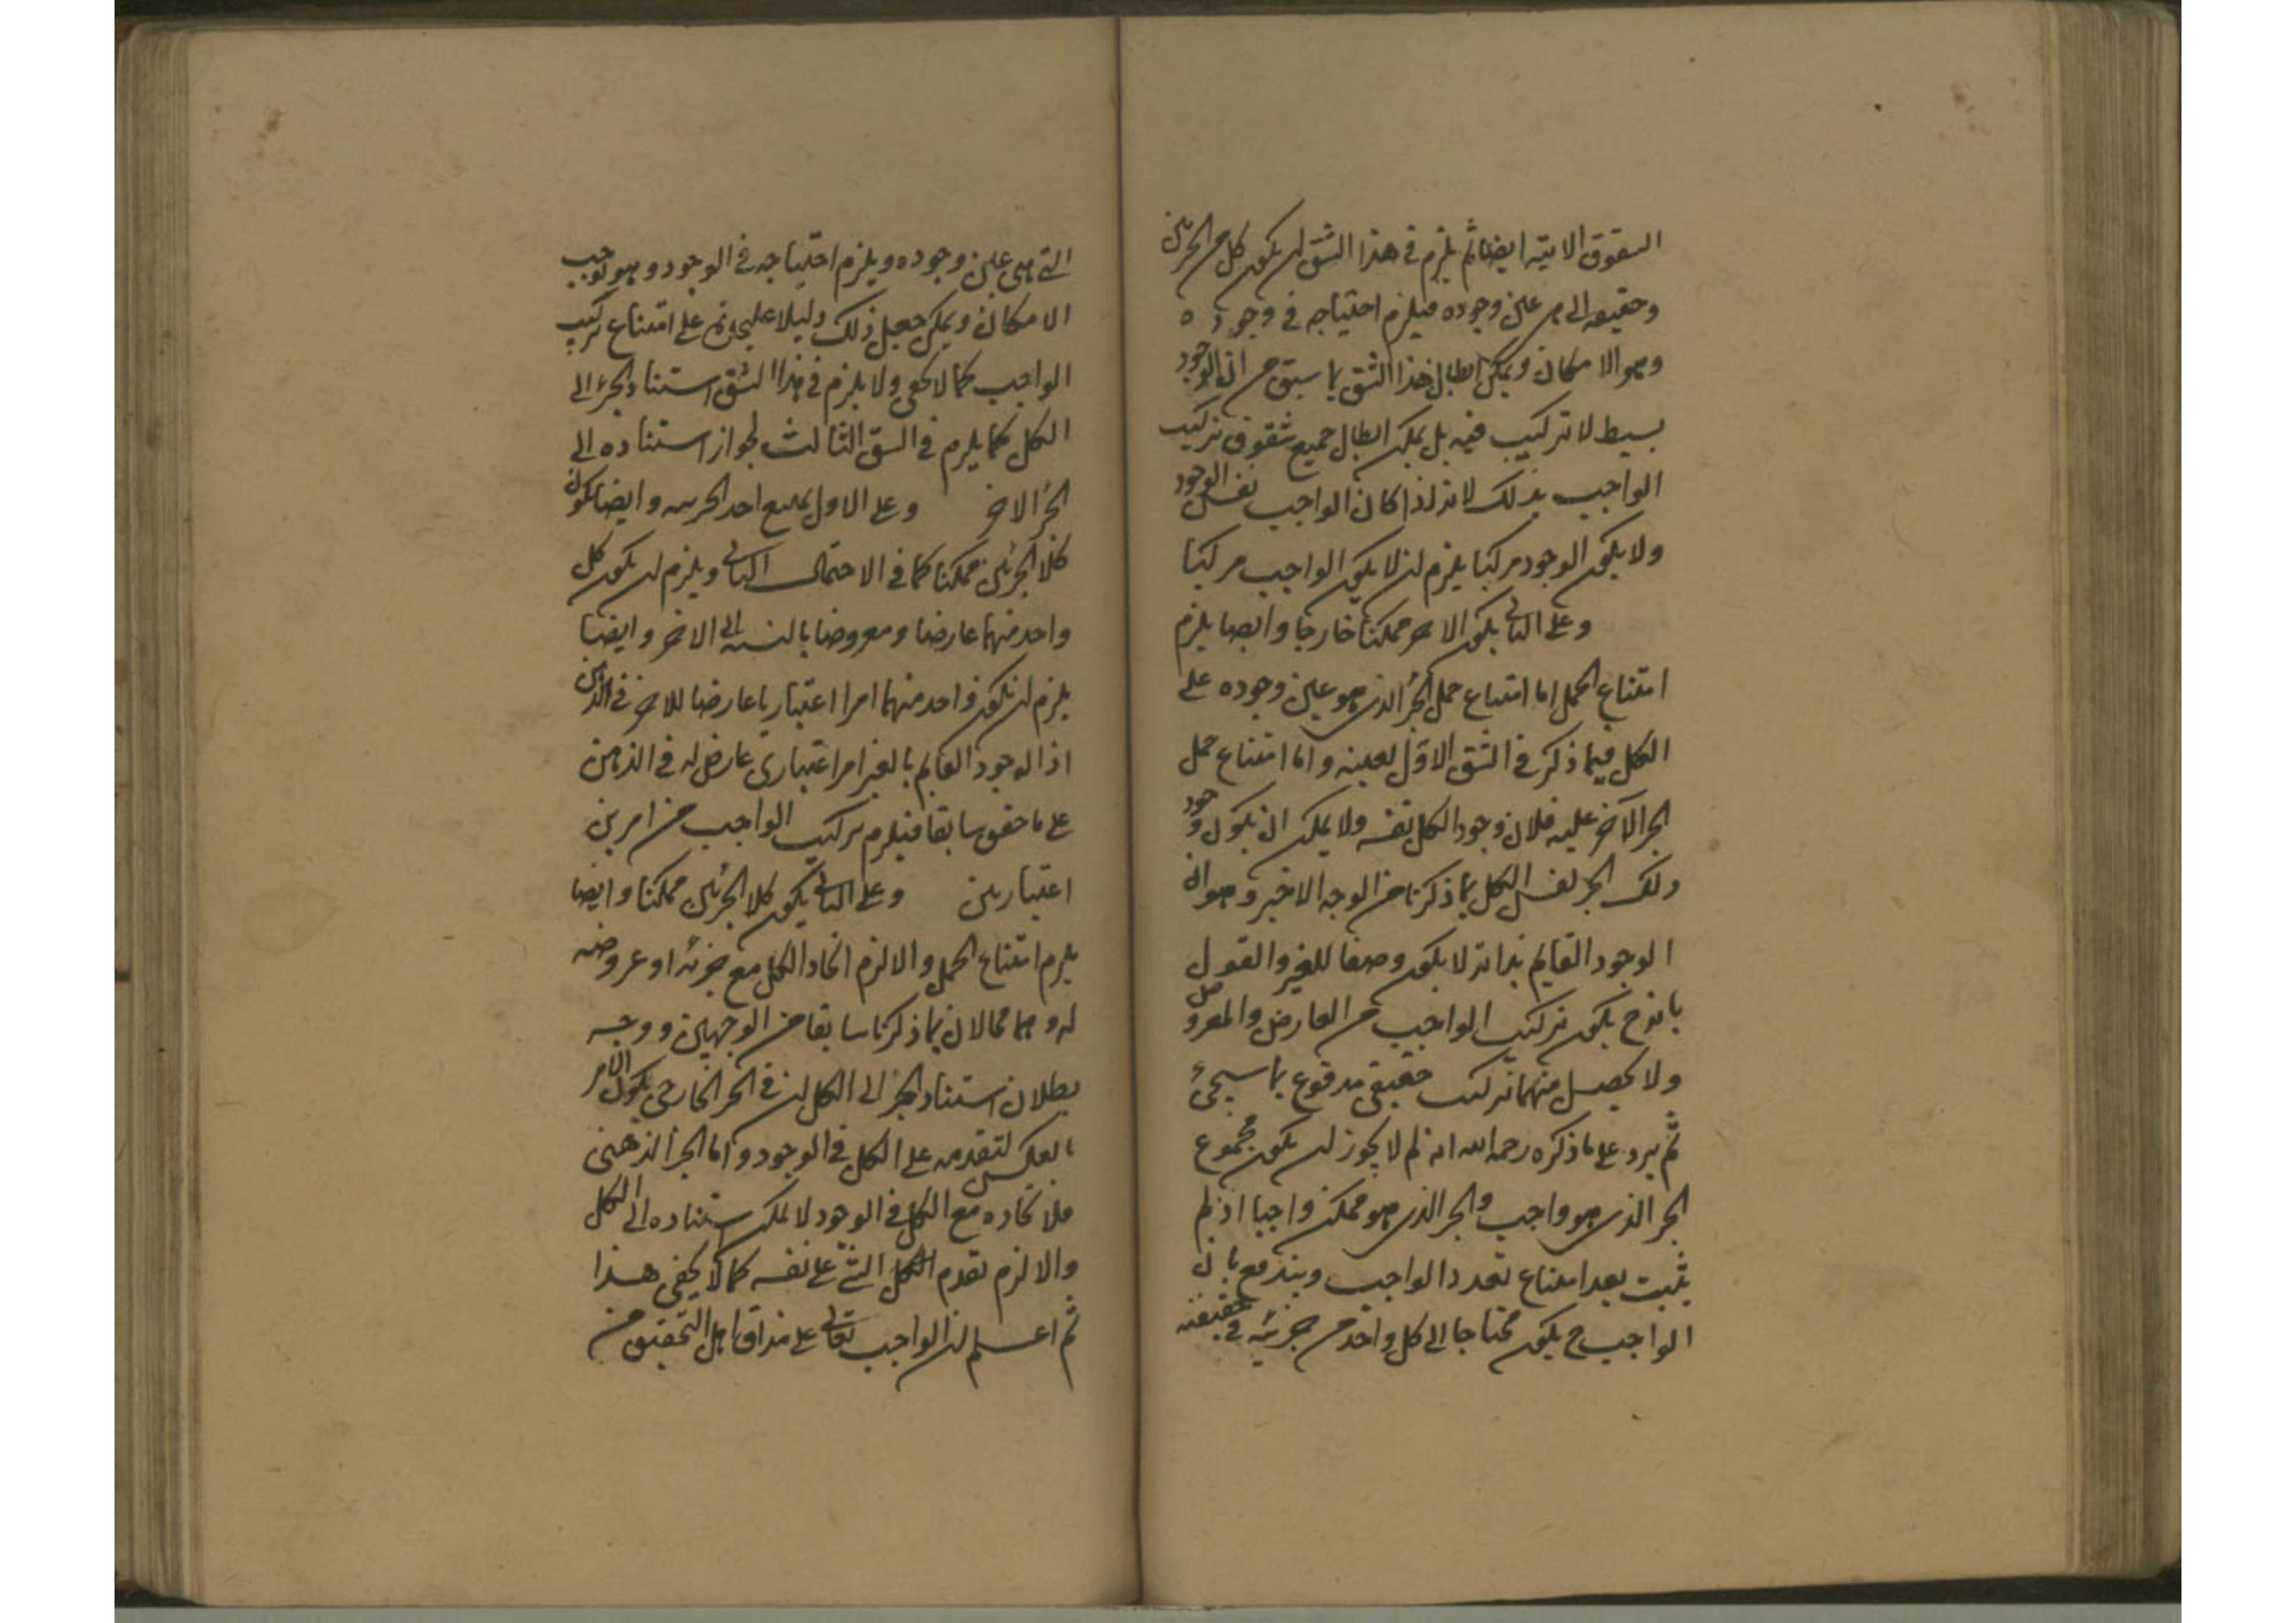 الشقوق الاتية ايضا ثم يلزم في هذا الشق ان يكون كل من الجزئين
وحقيقة الى من عين وجوده فيلزم احتياجه في وجوده
وهو الامكان ويمكن ابطال هذا الشق بما سبق من ان الوجود
بسيط لا تركيب فيه بل يمكن ابطال جميع شقوق تركيب
الواجب بذلك لانه اذا كان الواجب نفس الوجود
ولا يكون الوجود مركبا يلزم ان لا يكون الواجب مركبا
وعلى الثاني يكون الاخر ممكنا خارجا وايضا يلزم
امتناع الحمل اما امتناع حمل الجزء الذي هو عين وجوده على
الكل فيما ذكر في الشق الاول بعينه واما امتناع حمل
الجزء الآخر عليه فلان وجود الكل نفسه ولا يمكن ان يكون وجود
ذلك الجزء نفس الكل بما ذكرنا من الوجه الاخير وهو ان
الوجود القايم بذاته لا يكون وصفا للغير والقول
بانه ح يكون تركيب الواجب من العارض والمعروض
ولا يحصل منهما تركيب حقيقي مدفوع بما سيجئ
ثم يرد على ما ذكره رحمه الله انه لم لا يجوز ان يكون مجموع
الجزء الذي هو واجب والجزء الذي هو ممكن واجبا اذ لم
يثبت بعد امتناع تعدد الواجب ويندفع بان
الواجب ح يكون محتاجا الى كل واحد من جزئيه في حقيقته
التي هي عين وجوده ويلزم احتياجه في الوجود وهو يوجب
الامكان ويمكن جعل ذلك دليلا على امتناع تركيب
الواجب كما لا يخفى ولا يلزم في هذا الشق استناد الجزء الى
الكل كما يلزم في الشق الثالث لجواز استناده الى
الجزء الاخر وعلى الاول يمتنع احد الجزئين وايضا يكون
كلا الجزئين ممكنا كما في الاحتمال الثاني ويلزم ان يكون كل
واحد منهما عارضا ومعروضا بالنسبة الى الاخر وايضا
يلزم ان يكون واحد منهما امرا اعتباريا عارضا للاخر في الذهن
اذ الوجود القايم بالغير امر اعتباري عارض له في الذهن
على ما حقق سابقا فيلزم تركيب الواجب من امرين
اعتباريين وعلى الثاني يكون كلا الجزئين ممكنا وايضا
يلزم امتناع الحمل والا لزم اتحاد الكل مع جزئه او عروضه
له وهما محالان بما ذكرنا سابقا من الوجهين ووجه
بطلان استناد الجزء الى الكل ان في الجزء الخارجي يكون الامر
بالعكس لتقدمه على الكل في الوجود واما الجزء الذهني
فلاتحاده مع الكل في الوجود لا يمكن استناده الى الكل
والا لزم تقدم الشئ على نفسه كما لا يخفى هذا
ثم اعلم ان الواجب تعالى على مذاق اهل التحقيق من